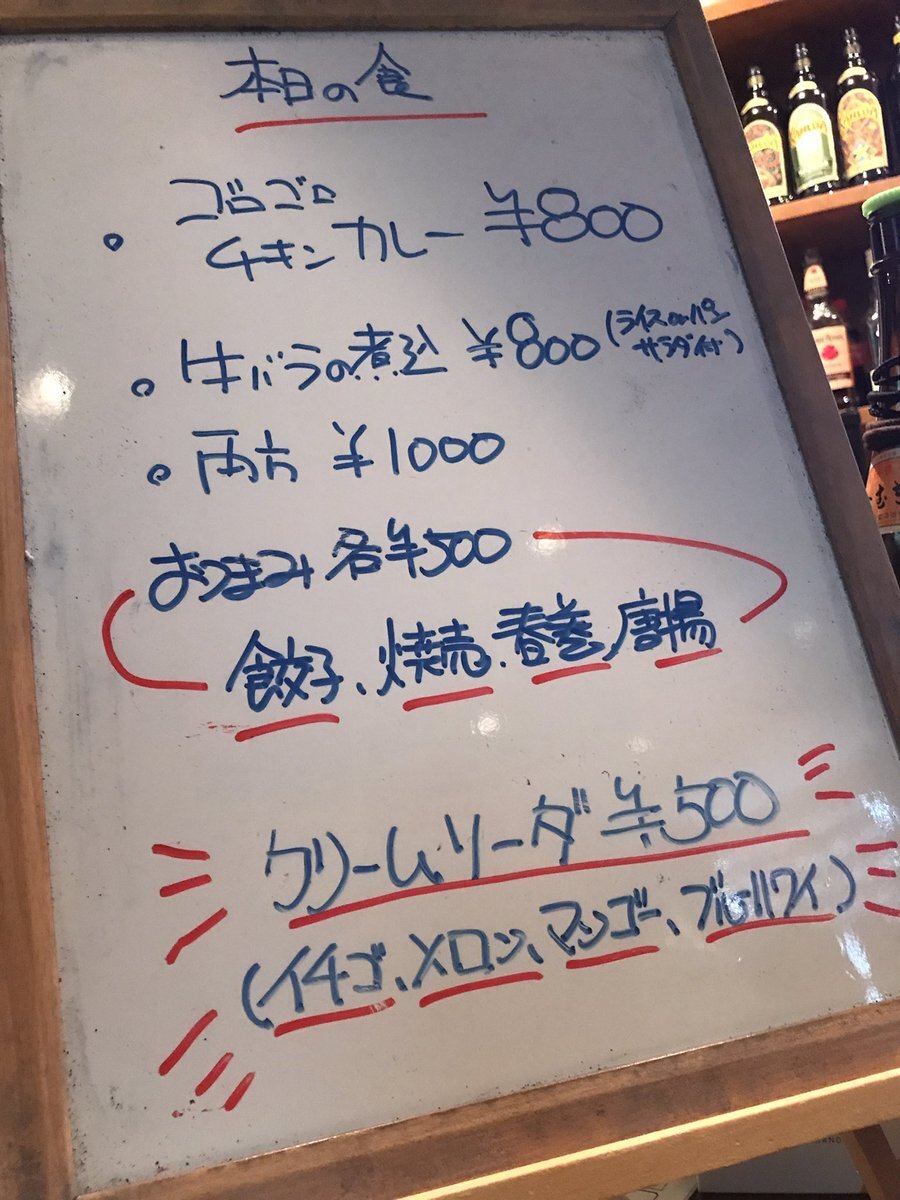 本日の食
ゴロゴロ
チキンカレー ¥800
牛バラの煮込 ¥800 (ライス or パン
サラダ付)
両方 ¥1000
おつまみ 各¥500
餃子、焼売、春巻、唐揚
クリームソーダ ¥500
(イチゴ、メロン、マンゴー、ブルーハワイ)